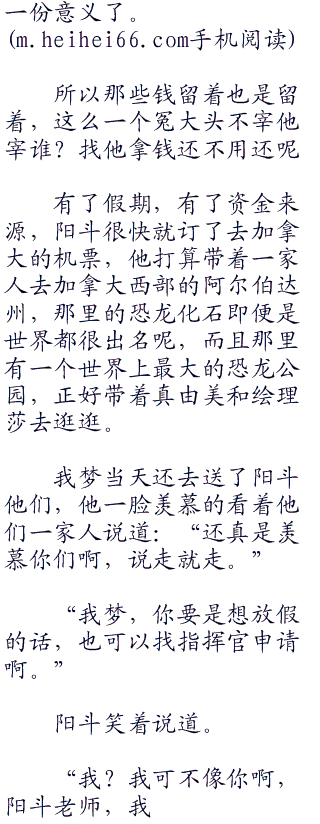 一份意义了。
(m.heihei66.com手机阅读)
所以那些钱留着也是留
着，这么一个冤大头不宰他
宰谁？找他拿钱还不用还呢
有了假期，有了资金来
源，阳斗很快就订了去加拿
大的机票，他打算带着一家
人去加拿大西部的阿尔伯达
州，那里的恐龙化石即便是
世界都很出名呢，而且那里
有一个世界上最大的恐龙公
园，正好带着真由美和绘理
莎去逛逛。
我梦当天还去送了阳斗
他们，他一脸羡慕的看着他
们一家人说道：“还真是羡
慕你们啊，说走就走。”
“我梦，你要是想放假
的话，也可以找指挥官申请
啊。”
阳斗笑着说道。
“我？我可不像你啊，
阳斗老师，我